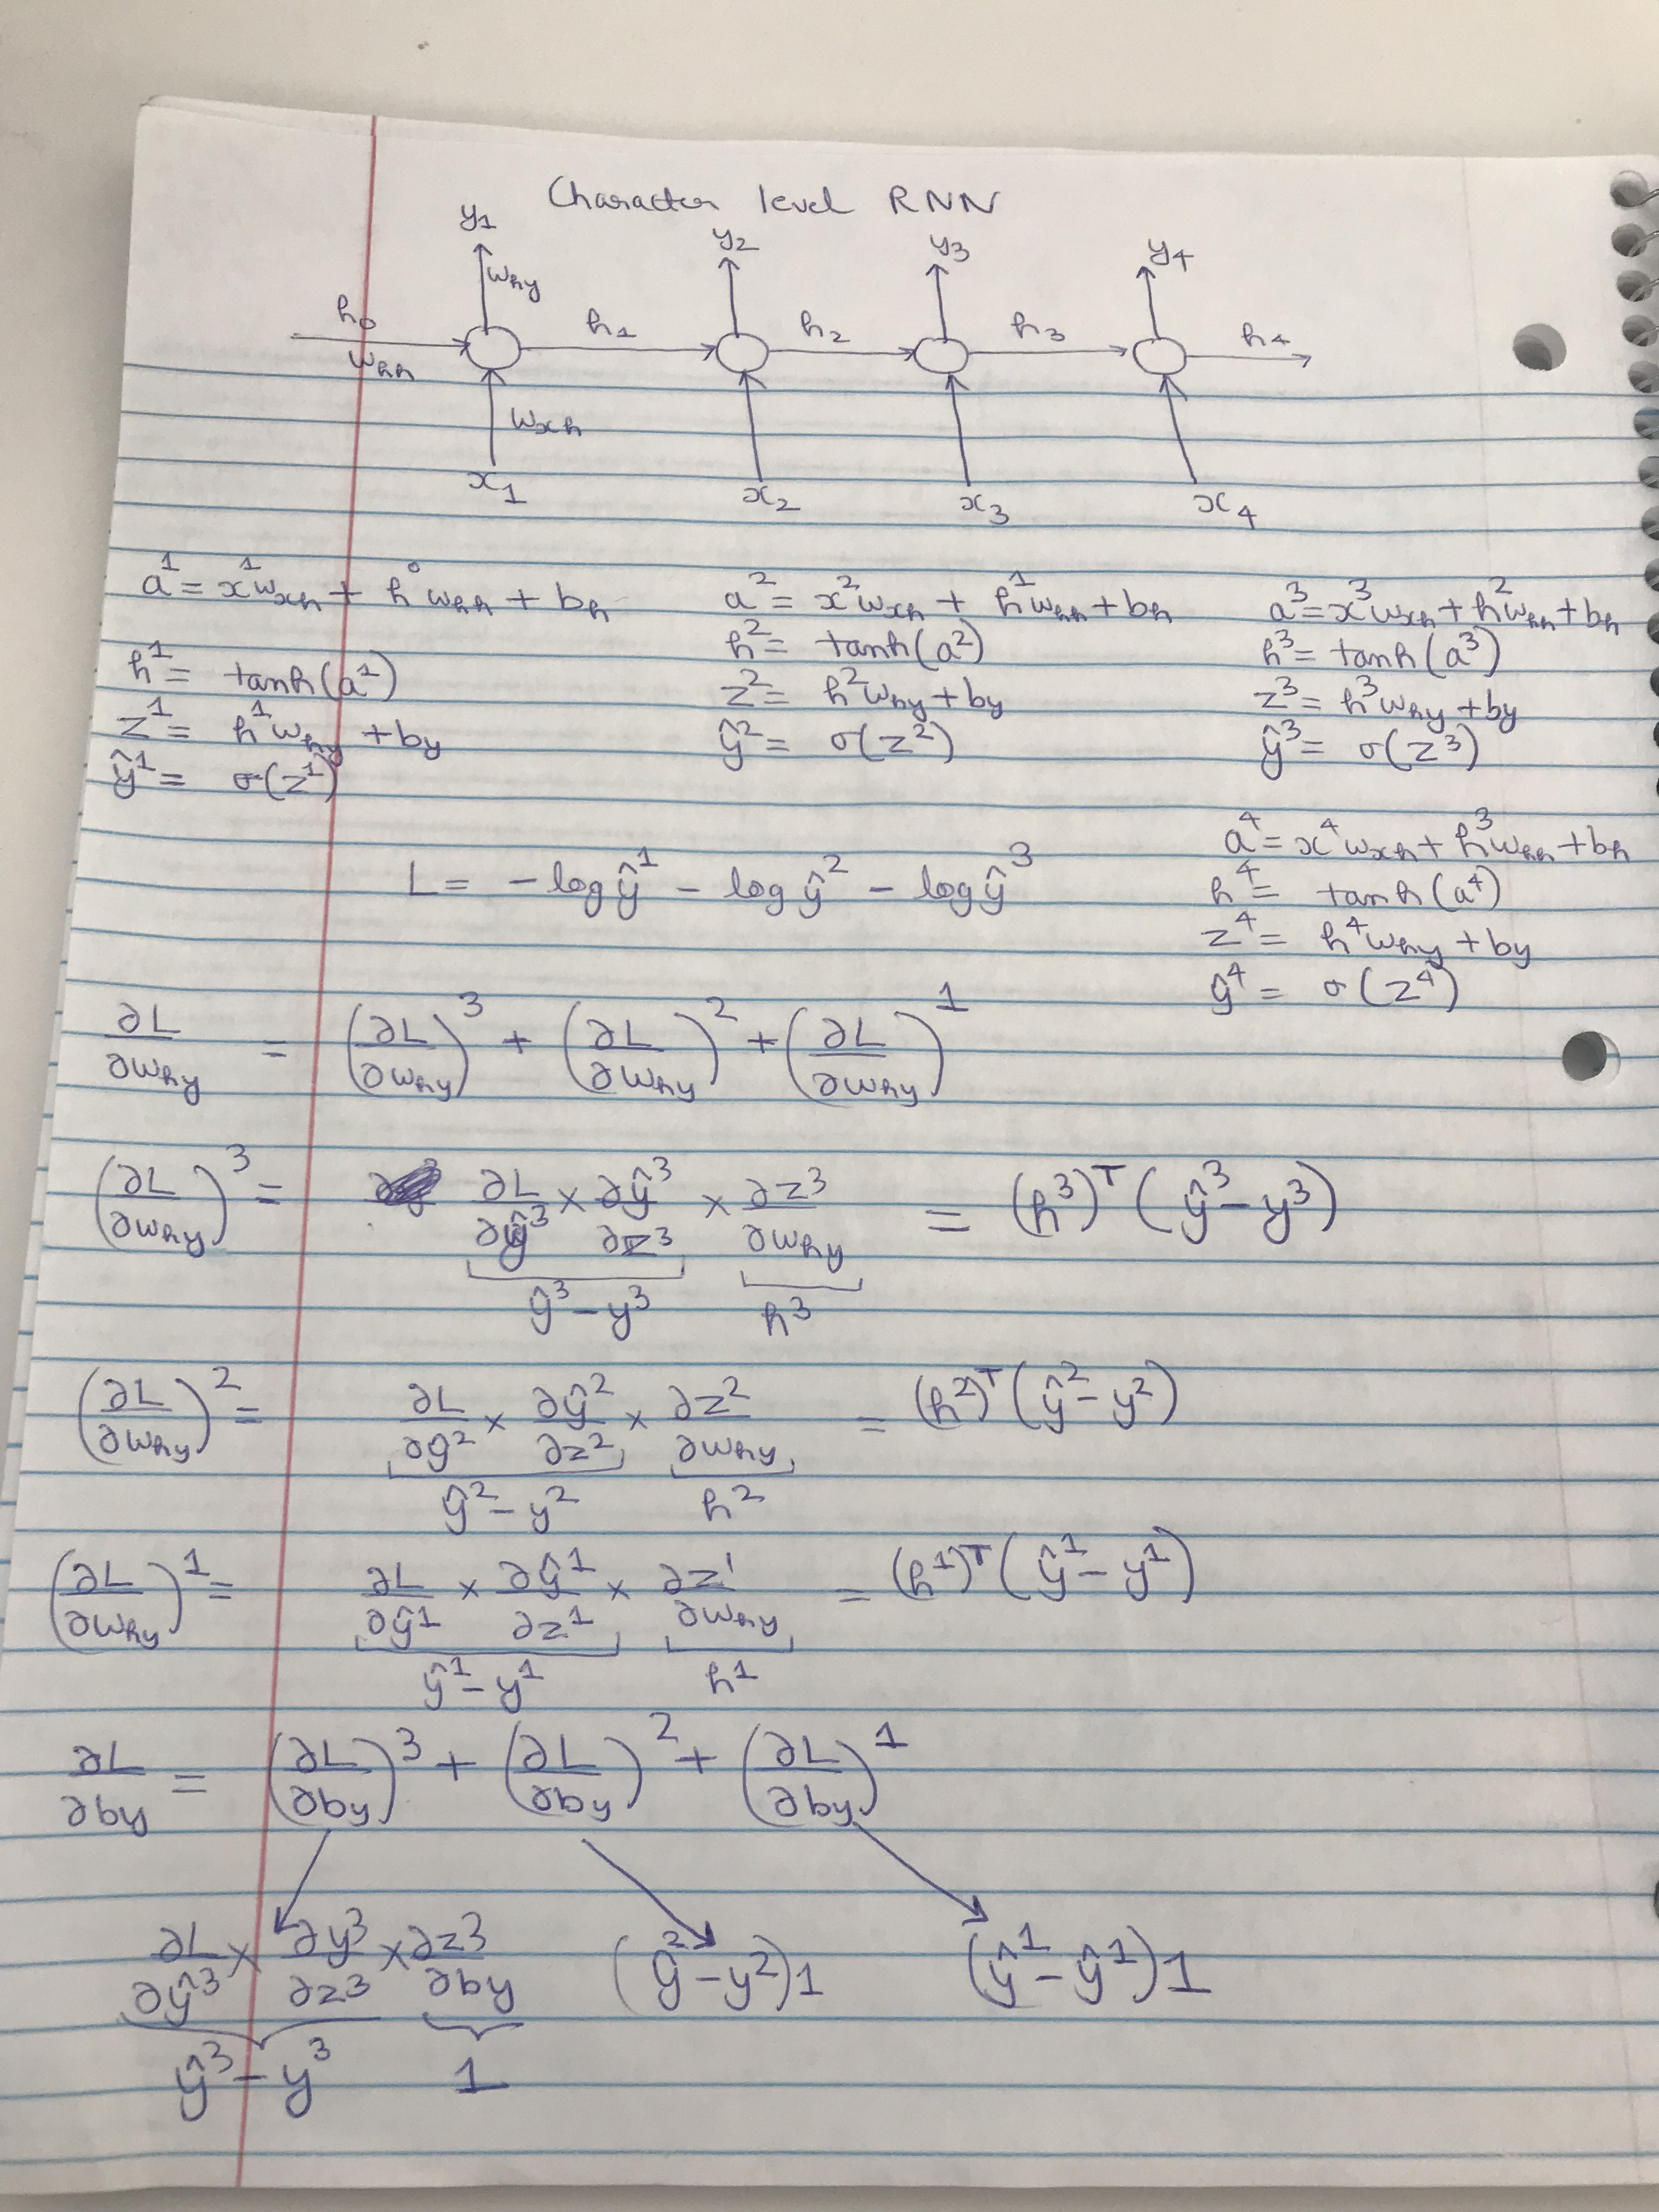 Character level RNN
y1 y2 y3 y4
why
h0 h1 h2 h3 h4
whh
wxh
x1 x2 x3 x4
a¹ = x¹wxh + h⁰whh + bh
h¹ = tanh(a¹)
z¹ = h¹why + by
ŷ¹ = σ(z¹)
a² = x²wxh + h¹whh + bh
h² = tanh(a²)
z² = h²why + by
ŷ² = σ(z²)
a³ = x³wxh + h²whh + bh
h³ = tanh(a³)
z³ = h³why + by
ŷ³ = σ(z³)
a⁴ = x⁴wxh + h³whh + bh
h⁴ = tanh(a⁴)
z⁴ = h⁴why + by
ŷ⁴ = σ(z⁴)
L = -log ŷ¹ - log ŷ² - log ŷ³
∂L/∂why = (∂L/∂why)³ + (∂L/∂why)² + (∂L/∂why)¹
(∂L/∂why)³ = ∂L/∂ŷ³ × ∂ŷ³/∂z³ × ∂z³/∂why = (h³)ᵀ(ŷ³ - y³)
ŷ³ - y³ h³
(∂L/∂why)² = ∂L/∂ŷ² × ∂ŷ²/∂z² × ∂z²/∂why = (h²)ᵀ(ŷ² - y²)
ŷ² - y² h²
(∂L/∂why)¹ = ∂L/∂ŷ¹ × ∂ŷ¹/∂z¹ × ∂z¹/∂why = (h¹)ᵀ(ŷ¹ - y¹)
ŷ¹ - y¹ h¹
∂L/∂by = (∂L/∂by)³ + (∂L/∂by)² + (∂L/∂by)¹
∂L/∂ŷ³ × ∂y³/∂z³ × ∂z³/∂by (ŷ² - y²)1 (ŷ¹ - ŷ¹)1
ŷ³ - y³ 1